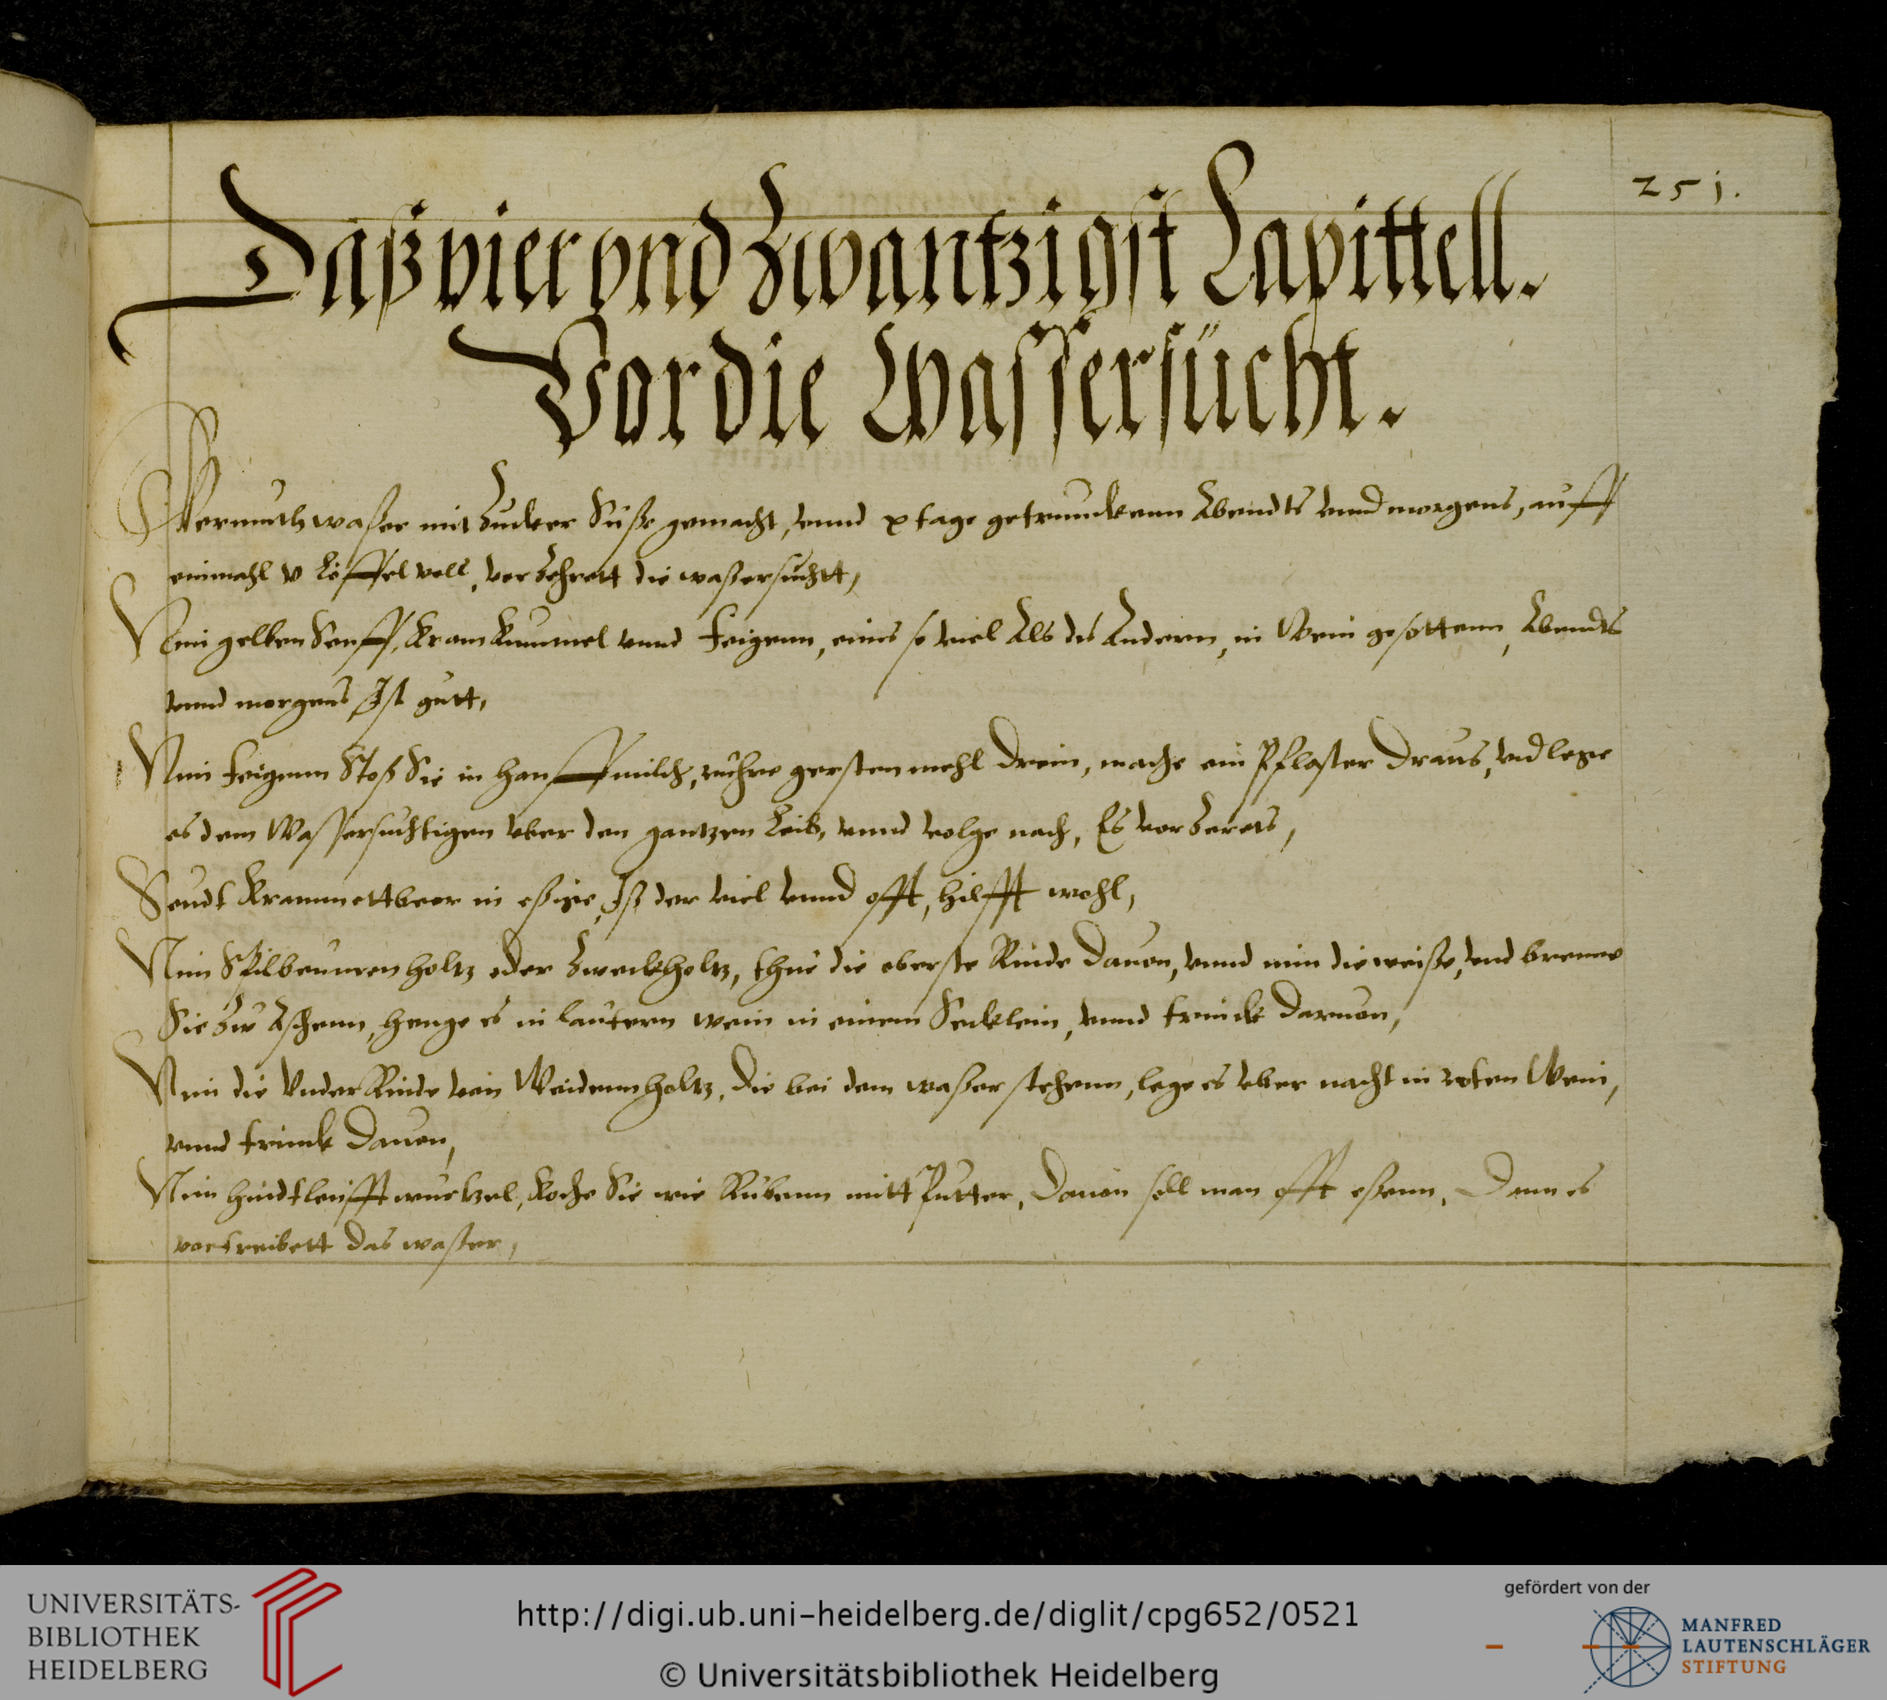 251.
Daß vier vnd Zwantzigst Capittell.
Vor die Wassersücht.
Wermuth waßer mit Zucker Süße gemacht, vnnd x tage getrunckenn Abendts vnnd morgens, auff
einmahl v Löffel voll, vorZehrett die waßersuchtt,
Nim gelben Senff, KramKummel vnnd Feigenn, eines so viel Als des Andern, in Wein gesottenn, Abendts
vnnd morgens Ist gutt,
Nim Feigenn Stoß Sie in Hanffmilch, ruhre gersten mehl Drein, mache ein Pflaster Draus, vnd lege
es dem Wassersuchtigen vber den gantzen Leib, vnnd volge nach, Es vorZerets,
Seudt Krammettbeer in eßige, Iß der viel vnnd offt, hilfft wohl,
Nim Spilbeumen holtz oder Zweckholtz, thue die oberste Rinde Dauon, vnnd nim die weiße, vnd brenne
Sie Zw Aschenn, henge es in lautern wein in einem Secklein, vnnd trinck Daruon,
Nim die Vnder Rinde von Weidennholtz, Die bei dem waßer stehenn, lege es vber nacht in roten Wein,
vnnd trinck Dauon,
Nim hindtleufft wurtzel, Koche Sie wie Rubenn mitt Putter, Dauon soll man offt eßenn, Dann es
vortreibett das waßer,
UNIVERSITÄTS-
BIBLIOTHEK
HEIDELBERG
http://digi.ub.uni-heidelberg.de/diglit/cpg652/0521
© Universitätsbibliothek Heidelberg
gefördert von der
MANFRED
LAUTENSCHLÄGER
STIFTUNG